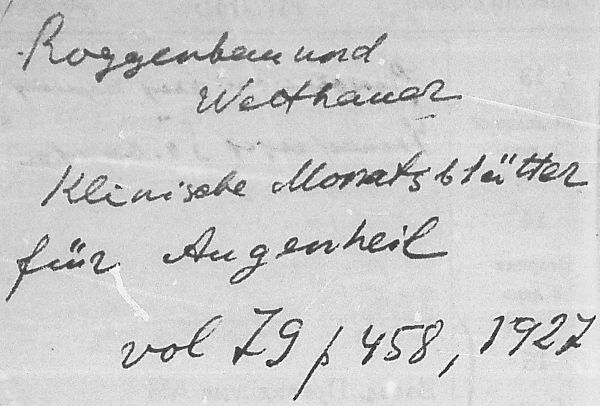 Roggenbau und
Wetthauer
Klinische Monatsblätter
für Augenheil
vol 79 p 458, 1927